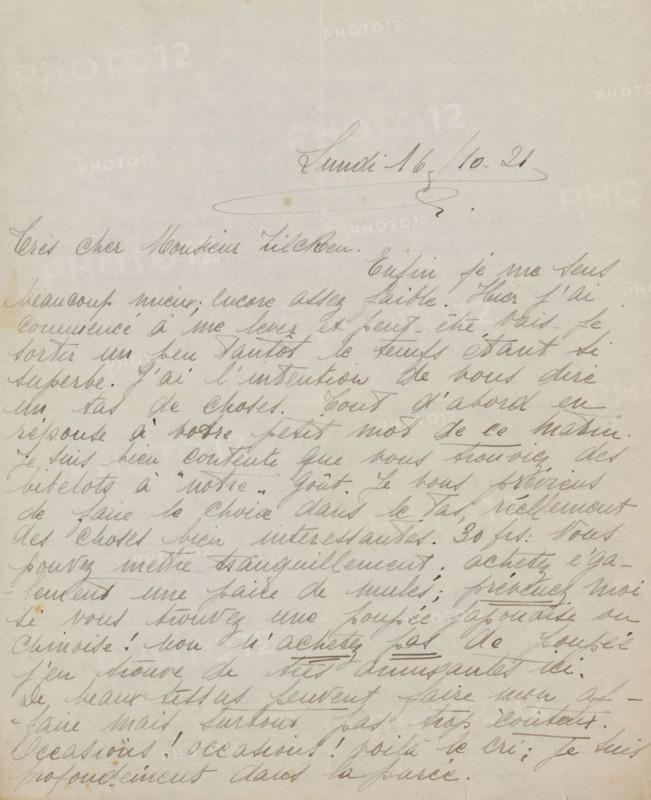 Lundi 16/10-21
Très cher Monsieur Zilcken.
Enfin je me sens
beaucoup mieux; encore assez faible. Hier j'ai
commencé à me lever et peut-être vais-je
sortir un peu tantôt le temps étant si
superbe. J'ai l'intention de vous dire
un tas de choses. Tout d'abord en
réponse à votre petit mot de ce matin.
Je suis bien contente que vous trouviez des
bibelots à "notre" goût. Je vous préviens
de faire le choix dans le tas, réellement
des choses bien interessantes. 30 frs. Vous
pouvez mettre tranquillement; achetez éga-
-lement une paire de mules; prévenez moi
si vous trouvez une poupée japonaise ou
Chinoise! non n'achetez pas de poupée
j'en trouve de très amusantes ici.
De beaux tissus peuvent faire mon af-
-faire mais surtout pas trop coûteux.
Occasions! occasions! voilà le cri; je suis
profondément dans la purée.
PHOTO12